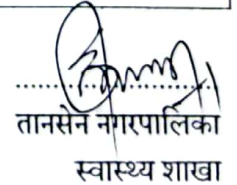 तानसेन नगरपालिका
स्वास्थ्य शाखा